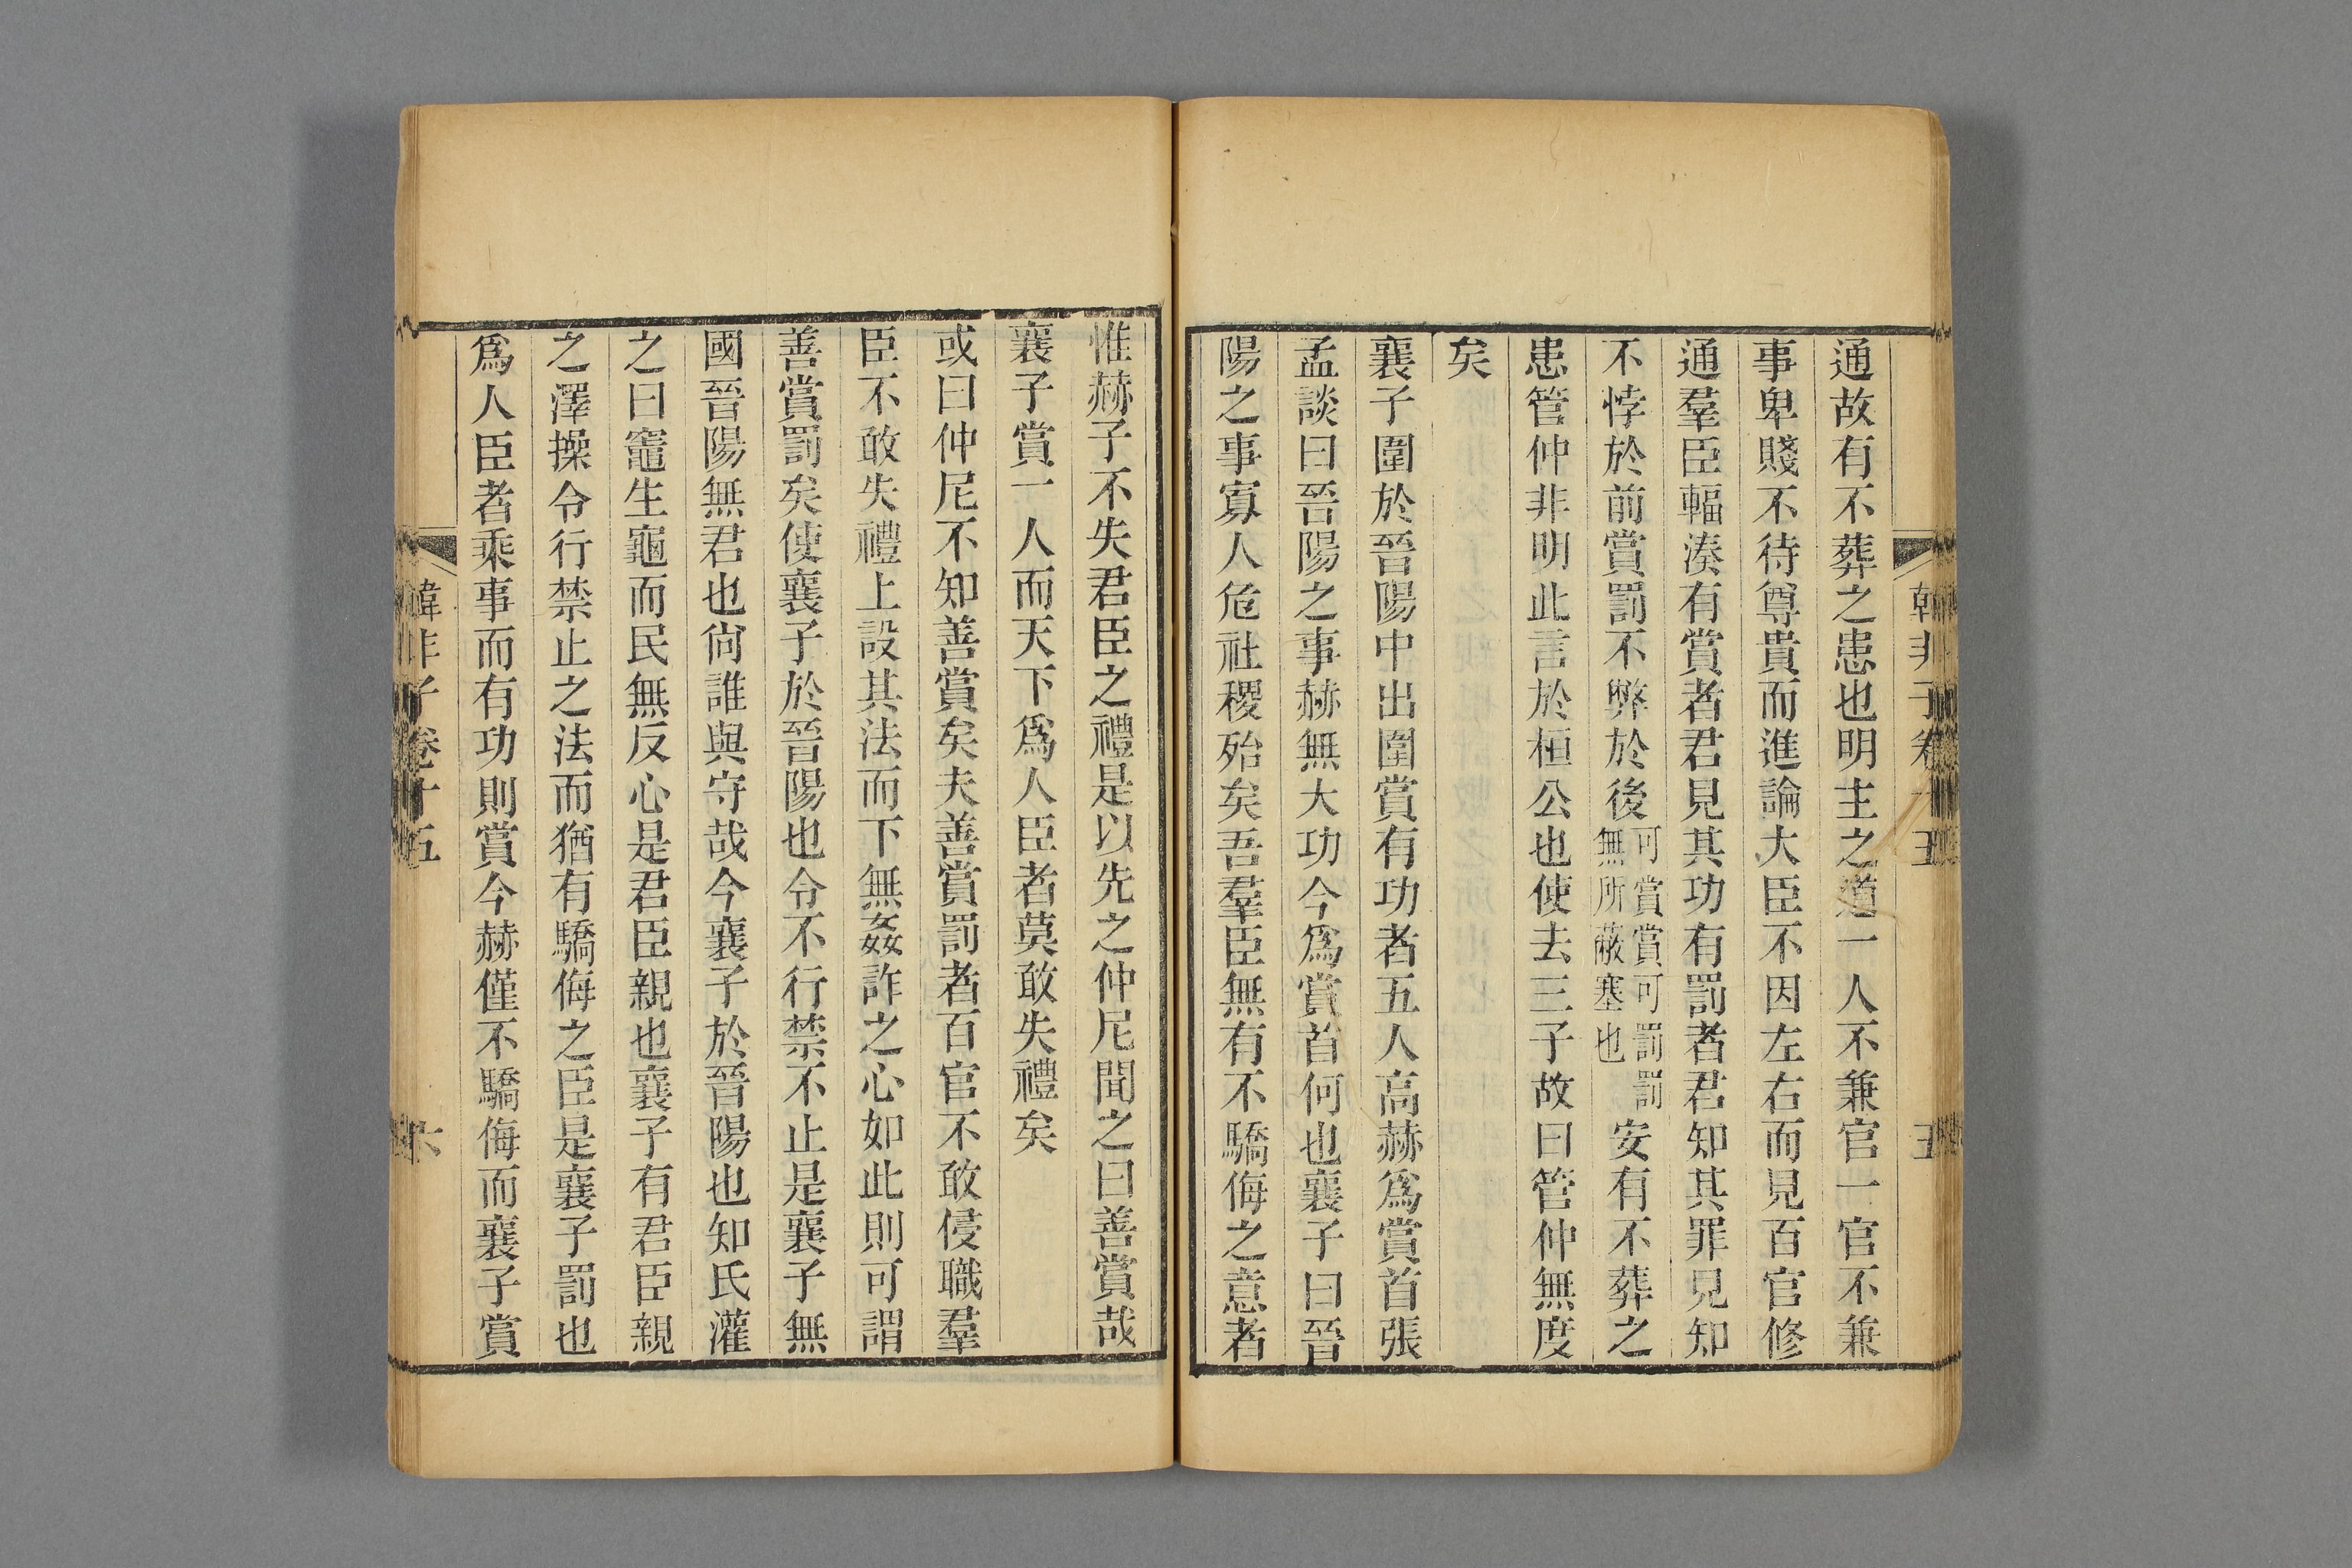 韓非子卷十五
五
通故有不葬之患也明主之道一人不兼官一官不兼
事卑賤不待尊貴而進論大臣不因左右而見百官修
通羣臣輻湊有賞者君見其功有罰者君知其罪見知
不悖於前賞罰不弊於後可賞賞可罰罰無所蔽塞也安有不葬之
患管仲非明此言於桓公也使去三子故曰管仲無度
矣
襄子圍於晉陽中出圍賞有功者五人高赫爲賞首張
孟談曰晉陽之事赫無大功今爲賞首何也襄子曰晉
陽之事寡人危社稷殆矣吾羣臣無有不驕侮之意者
惟赫子不失君臣之禮是以先之仲尼聞之曰善賞哉
襄子賞一人而天下爲人臣者莫敢失禮矣
或曰仲尼不知善賞矣夫善賞罰者百官不敢侵職羣
臣不敢失禮上設其法而下無姦詐之心如此則可謂
善賞罰矣使襄子於晉陽也令不行禁不止是襄子無
國晉陽無君也尙誰與守哉今襄子於晉陽也知氏灌
之曰竈生龜而民無反心是君臣親也襄子有君臣親
之澤操令行禁止之法而猶有驕侮之臣是襄子罰也
爲人臣者乘事而有功則賞今赫僅不驕侮而襄子賞
韓非子卷十五
六